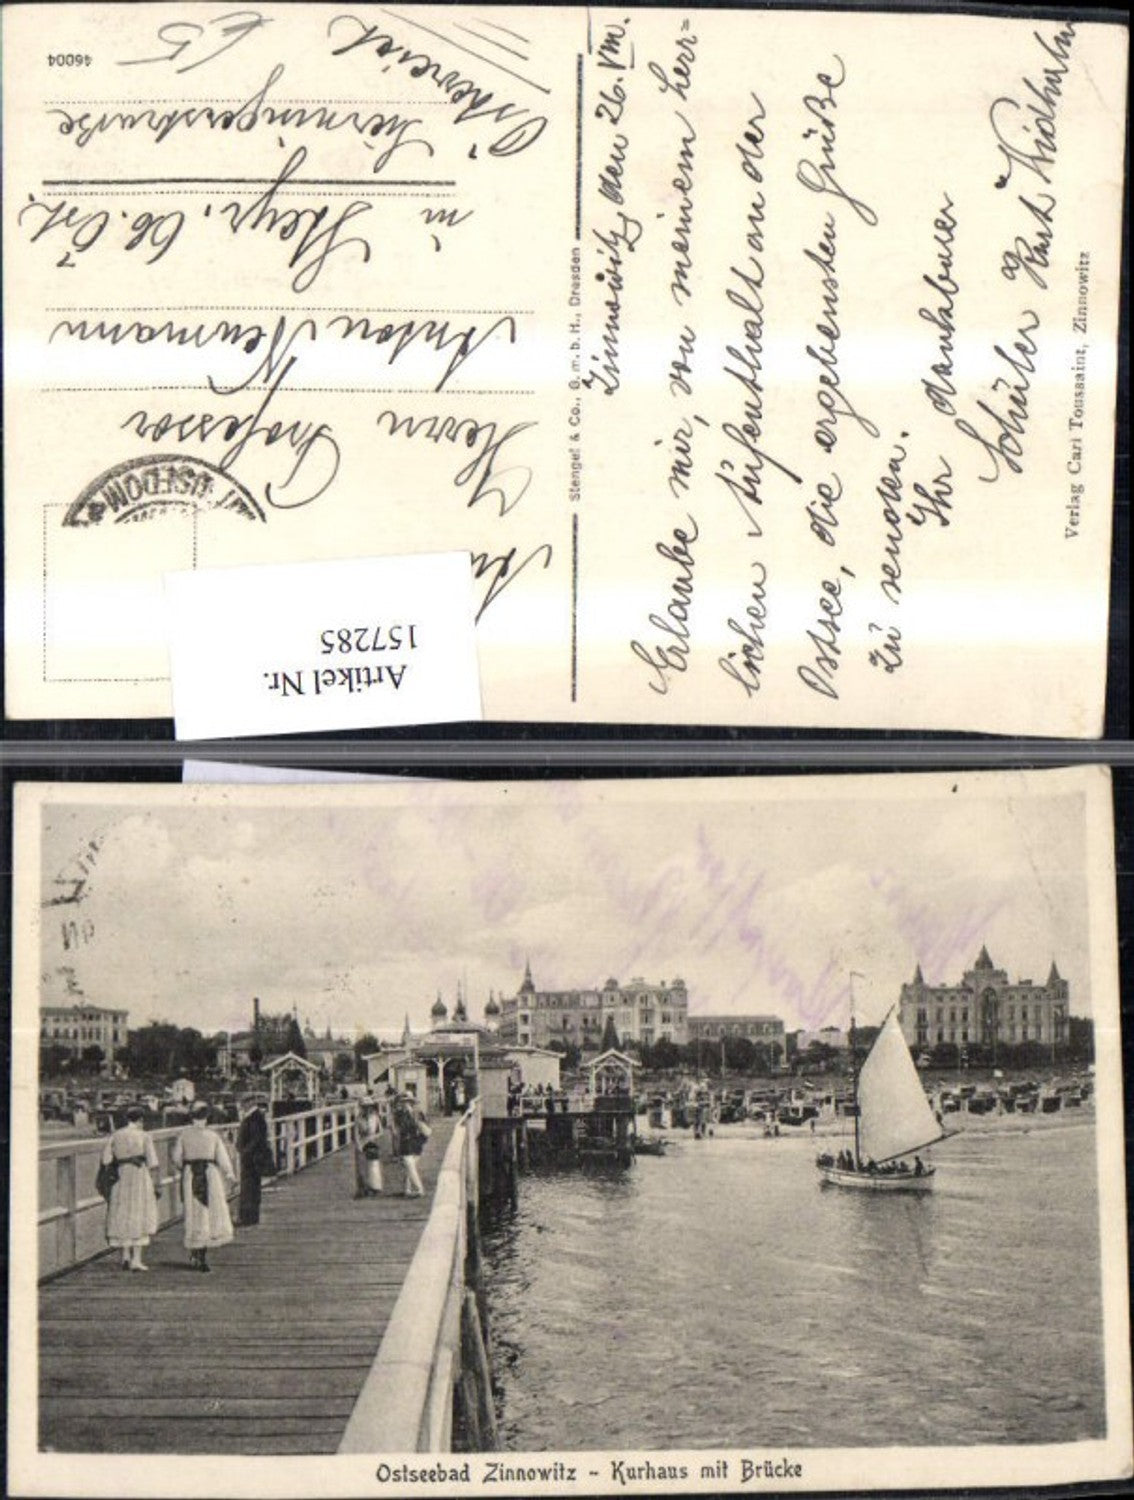 46004
65
An
Herrn Professor
Anton Neumann
in Steyr, Ob. Öst.
Sierningerstraße
Österreich
USEDOM
Artikel Nr.
157285
Stengel & Co., G. m. b. H., Dresden
Zinnowitz, den 26. VIII.
Erlaube mir, von meinem herr=
lichen Aufenthalt an der
Ostsee, die ergebensten Grüße
zu senden.
Ihr dankbarer
Schüler Kurt
Verlag Carl Toussaint, Zinnowitz
Ostseebad Zinnowitz - Kurhaus mit Brücke